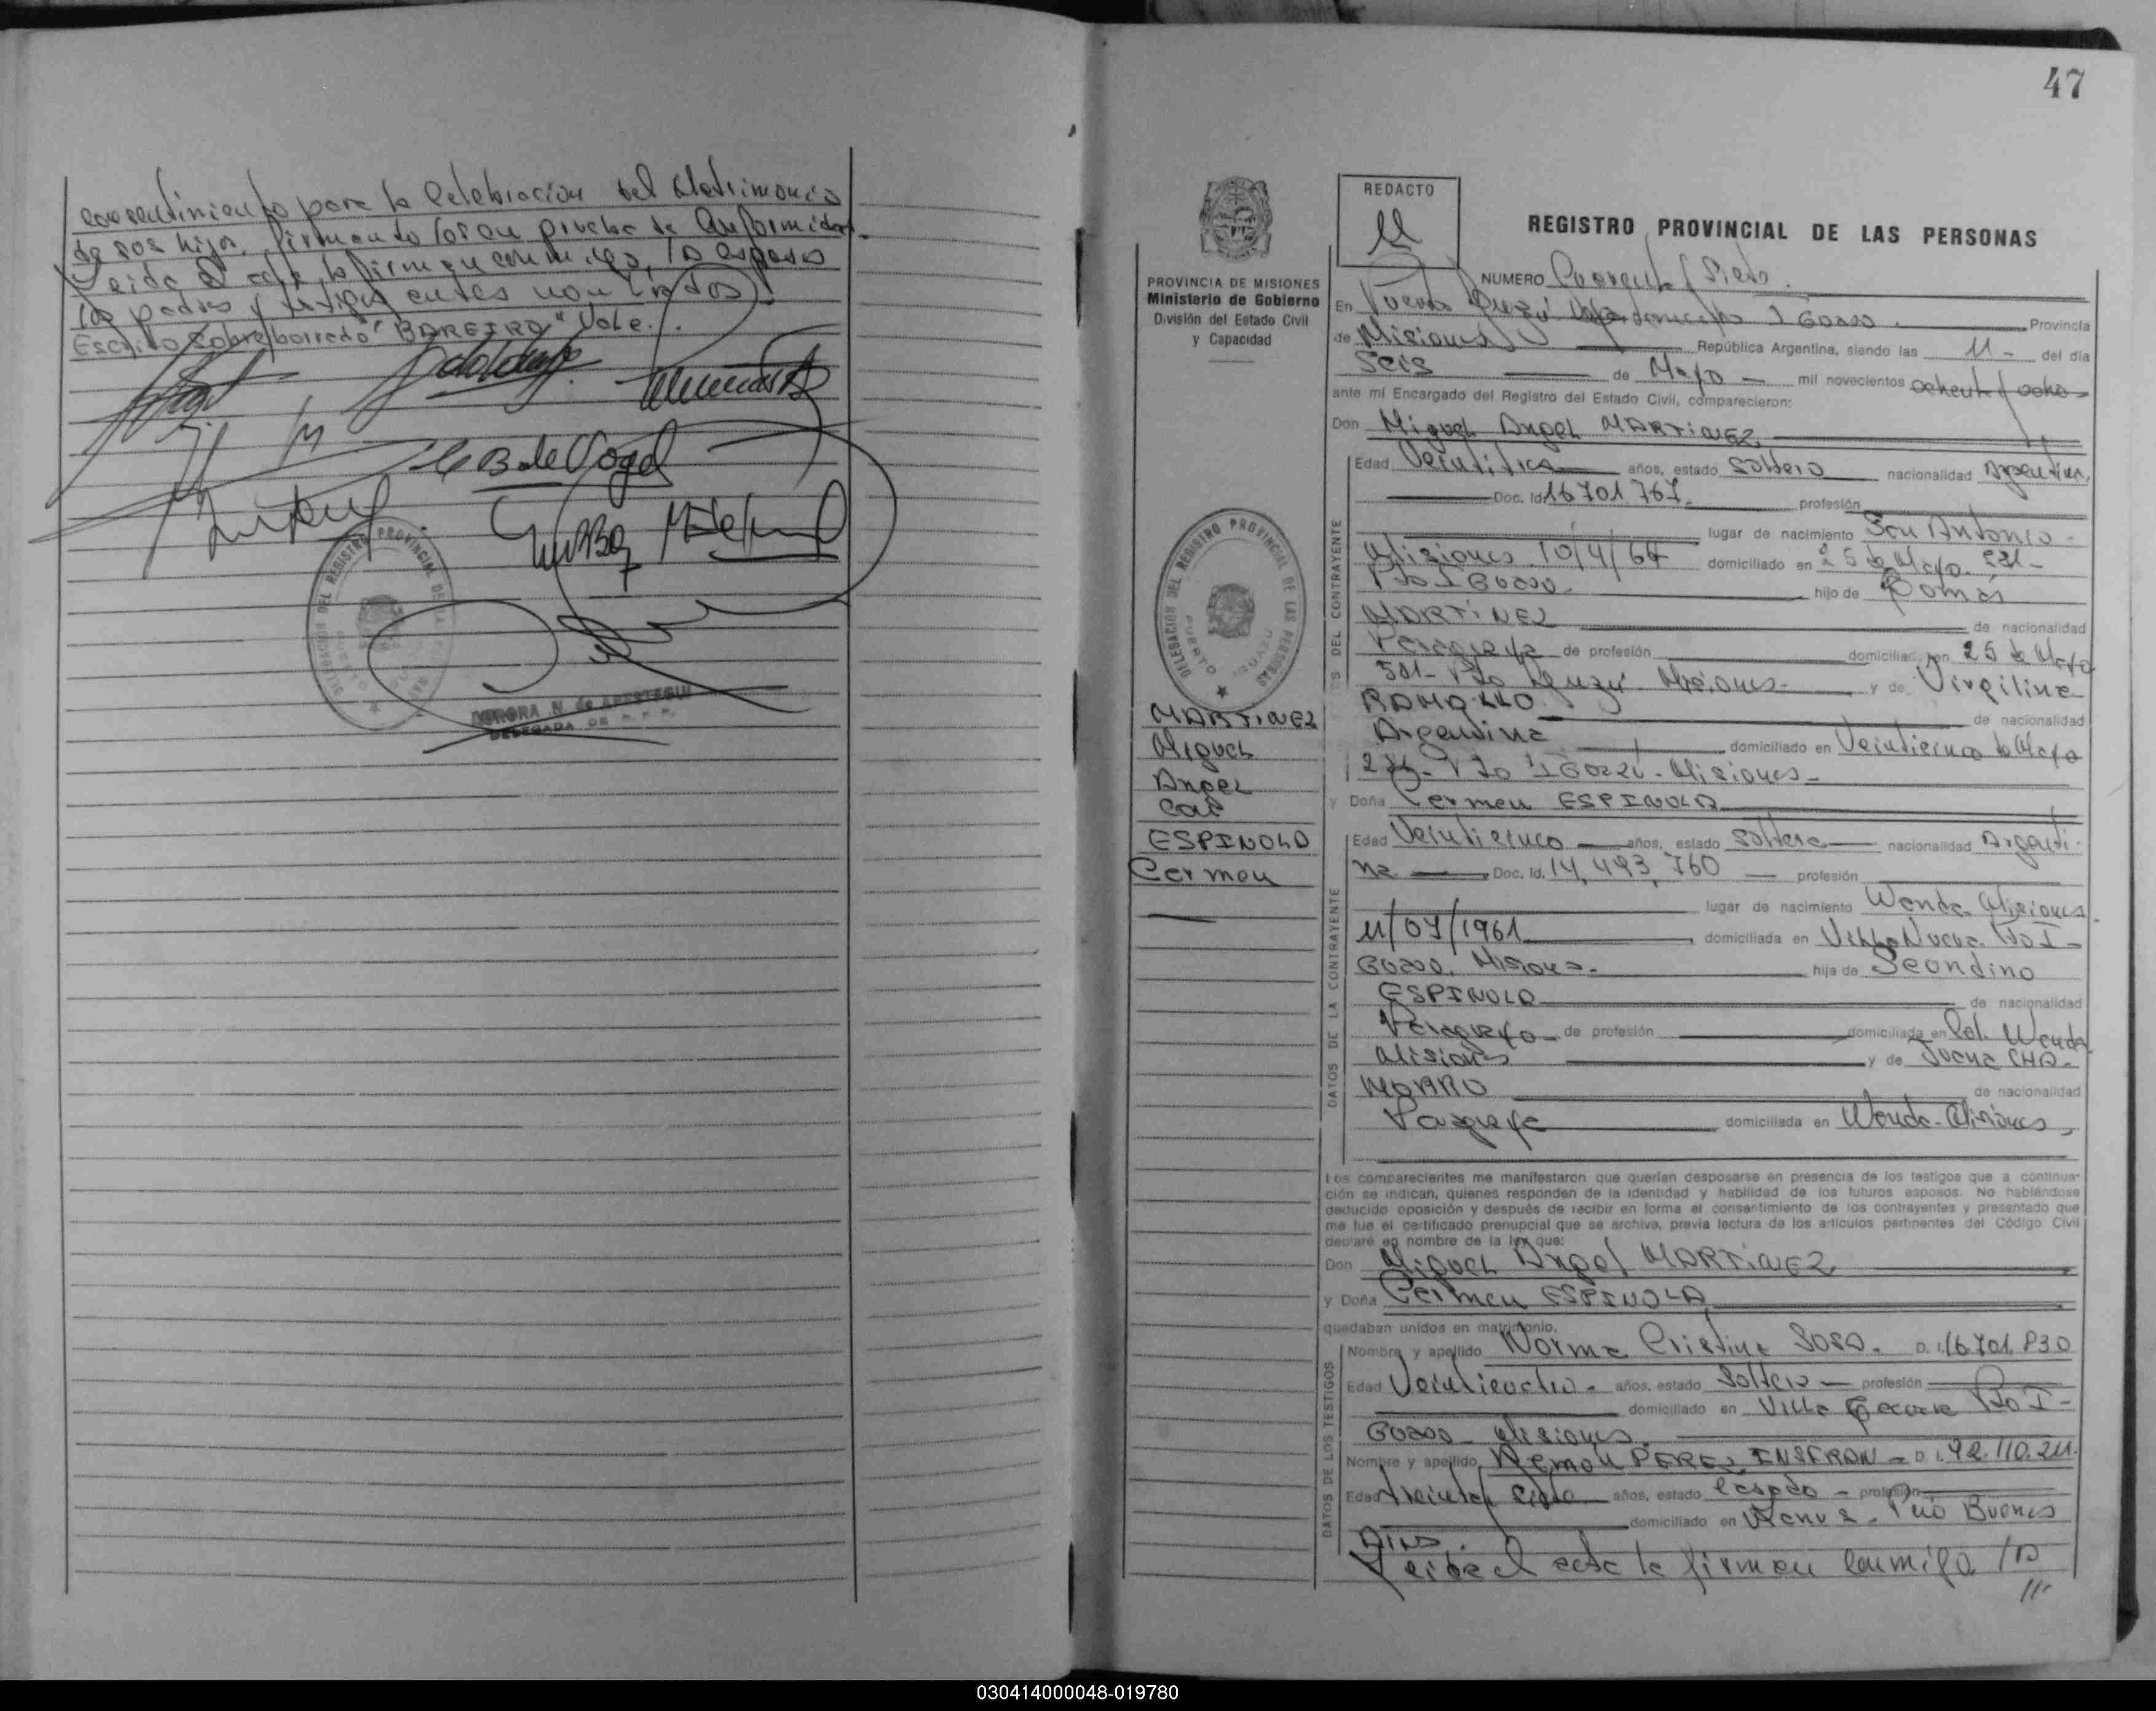 consentimiento para la Celebracion del Matrimonio
de sos hijos. firmando Son en prueba de Conformidad.
Leida el acta, la firman conmigo, los esposos
los padres y testigos antes nombrados
Escrito sobre borrado "BAREIRO" Vale.
G B de Vogel
DELEGACION DEL REGISTRO PROVINCIAL DE LAS PERSONAS
AURORA N. de ARESTEGUI
DELEGADA DE R. P. P.
47
PROVINCIA DE MISIONES
Ministerio de Gobierno
División del Estado Civil
y Capacidad
DELEGACION DEL REGISTRO PROVINCIAL DE LAS PERSONAS
PUERTO IGUAZU
MARTINEZ
Miguel
Angel
Con
ESPINOLA
Carmen
REDACTO
REGISTRO PROVINCIAL DE LAS PERSONAS
NUMERO Cuarenta y Siete
En Puerto Iguazú Departamento IGUAZU Provincia
de Misiones República Argentina, siendo las 11 - del día
Seis de Mayo mil novecientos ochenta y ocho
ante mí Encargado del Registro del Estado Civil, comparecieron:
Don Miguel Angel MARTINEZ
DATOS DEL CONTRAYENTE
Edad años, estado Soltero nacionalidad Argentina,
Doc. Id. 16701767 profesión
lugar de nacimiento San Antonio
Misiones 10/4/64 domiciliado en 25 de Mayo
Pto IGUAZU. hijo de
MARTINEZ de nacionalidad
Paraguaya de profesión domiciliado en 25 de Mayo
Pto Iguazú Misiones y de Virgilina
RAMALLO de nacionalidad
Argentina domiciliado en Veinticinco de Mayo
Pto IGUAZU - Misiones -
y Doña Carmen ESPINOLA
DATOS DE LA CONTRAYENTE
Edad Veinticinco años, estado Soltera nacionalidad Argenti-
na Doc. Id. 14,493,760 profesión
lugar de nacimiento Wanda Misiones
11/07/1961 domiciliada en Villa Nueva Pto I-
GUAZU, Misiones. hija de Secundino
ESPINOLA de nacionalidad
Paraguayo de profesión domiciliada en Col. Wanda
Misiones y de Juana CHA-
MORRO de nacionalidad
Paraguaya domiciliada en Wanda - Misiones
Los comparecientes me manifestaron que querían desposarse en presencia de los testigos que a continua-
ción se indican, quienes responden de la identidad y habilidad de los futuros esposos. No habiéndose
deducido oposición y después de recibir en forma el consentimiento de los contrayentes y presentado que
me fue el certificado prenupcial que se archiva, previa lectura de los artículos pertinentes del Código Civil
declaré en nombre de la ley que:
Don Miguel Angel MARTINEZ
y Doña Carmen ESPINOLA
quedaban unidos en matrimonio.
DATOS DE LOS TESTIGOS
Nombre y apellido Norma Cristina SOSA. D.I. 16.701.830
Edad Veinticuatro - años, estado Soltera profesión
domiciliado en Villa Pto I-
GUAZU - Misiones.
Nombre y apellido Ramon PEREZ INSFRAN - D.I. 92.110.211.
Edad treinta y siete años, estado Casado - profesión
domiciliado en Buenos
Aires.
Leida el acta la firman conmigo los
///-
030414000048-019780